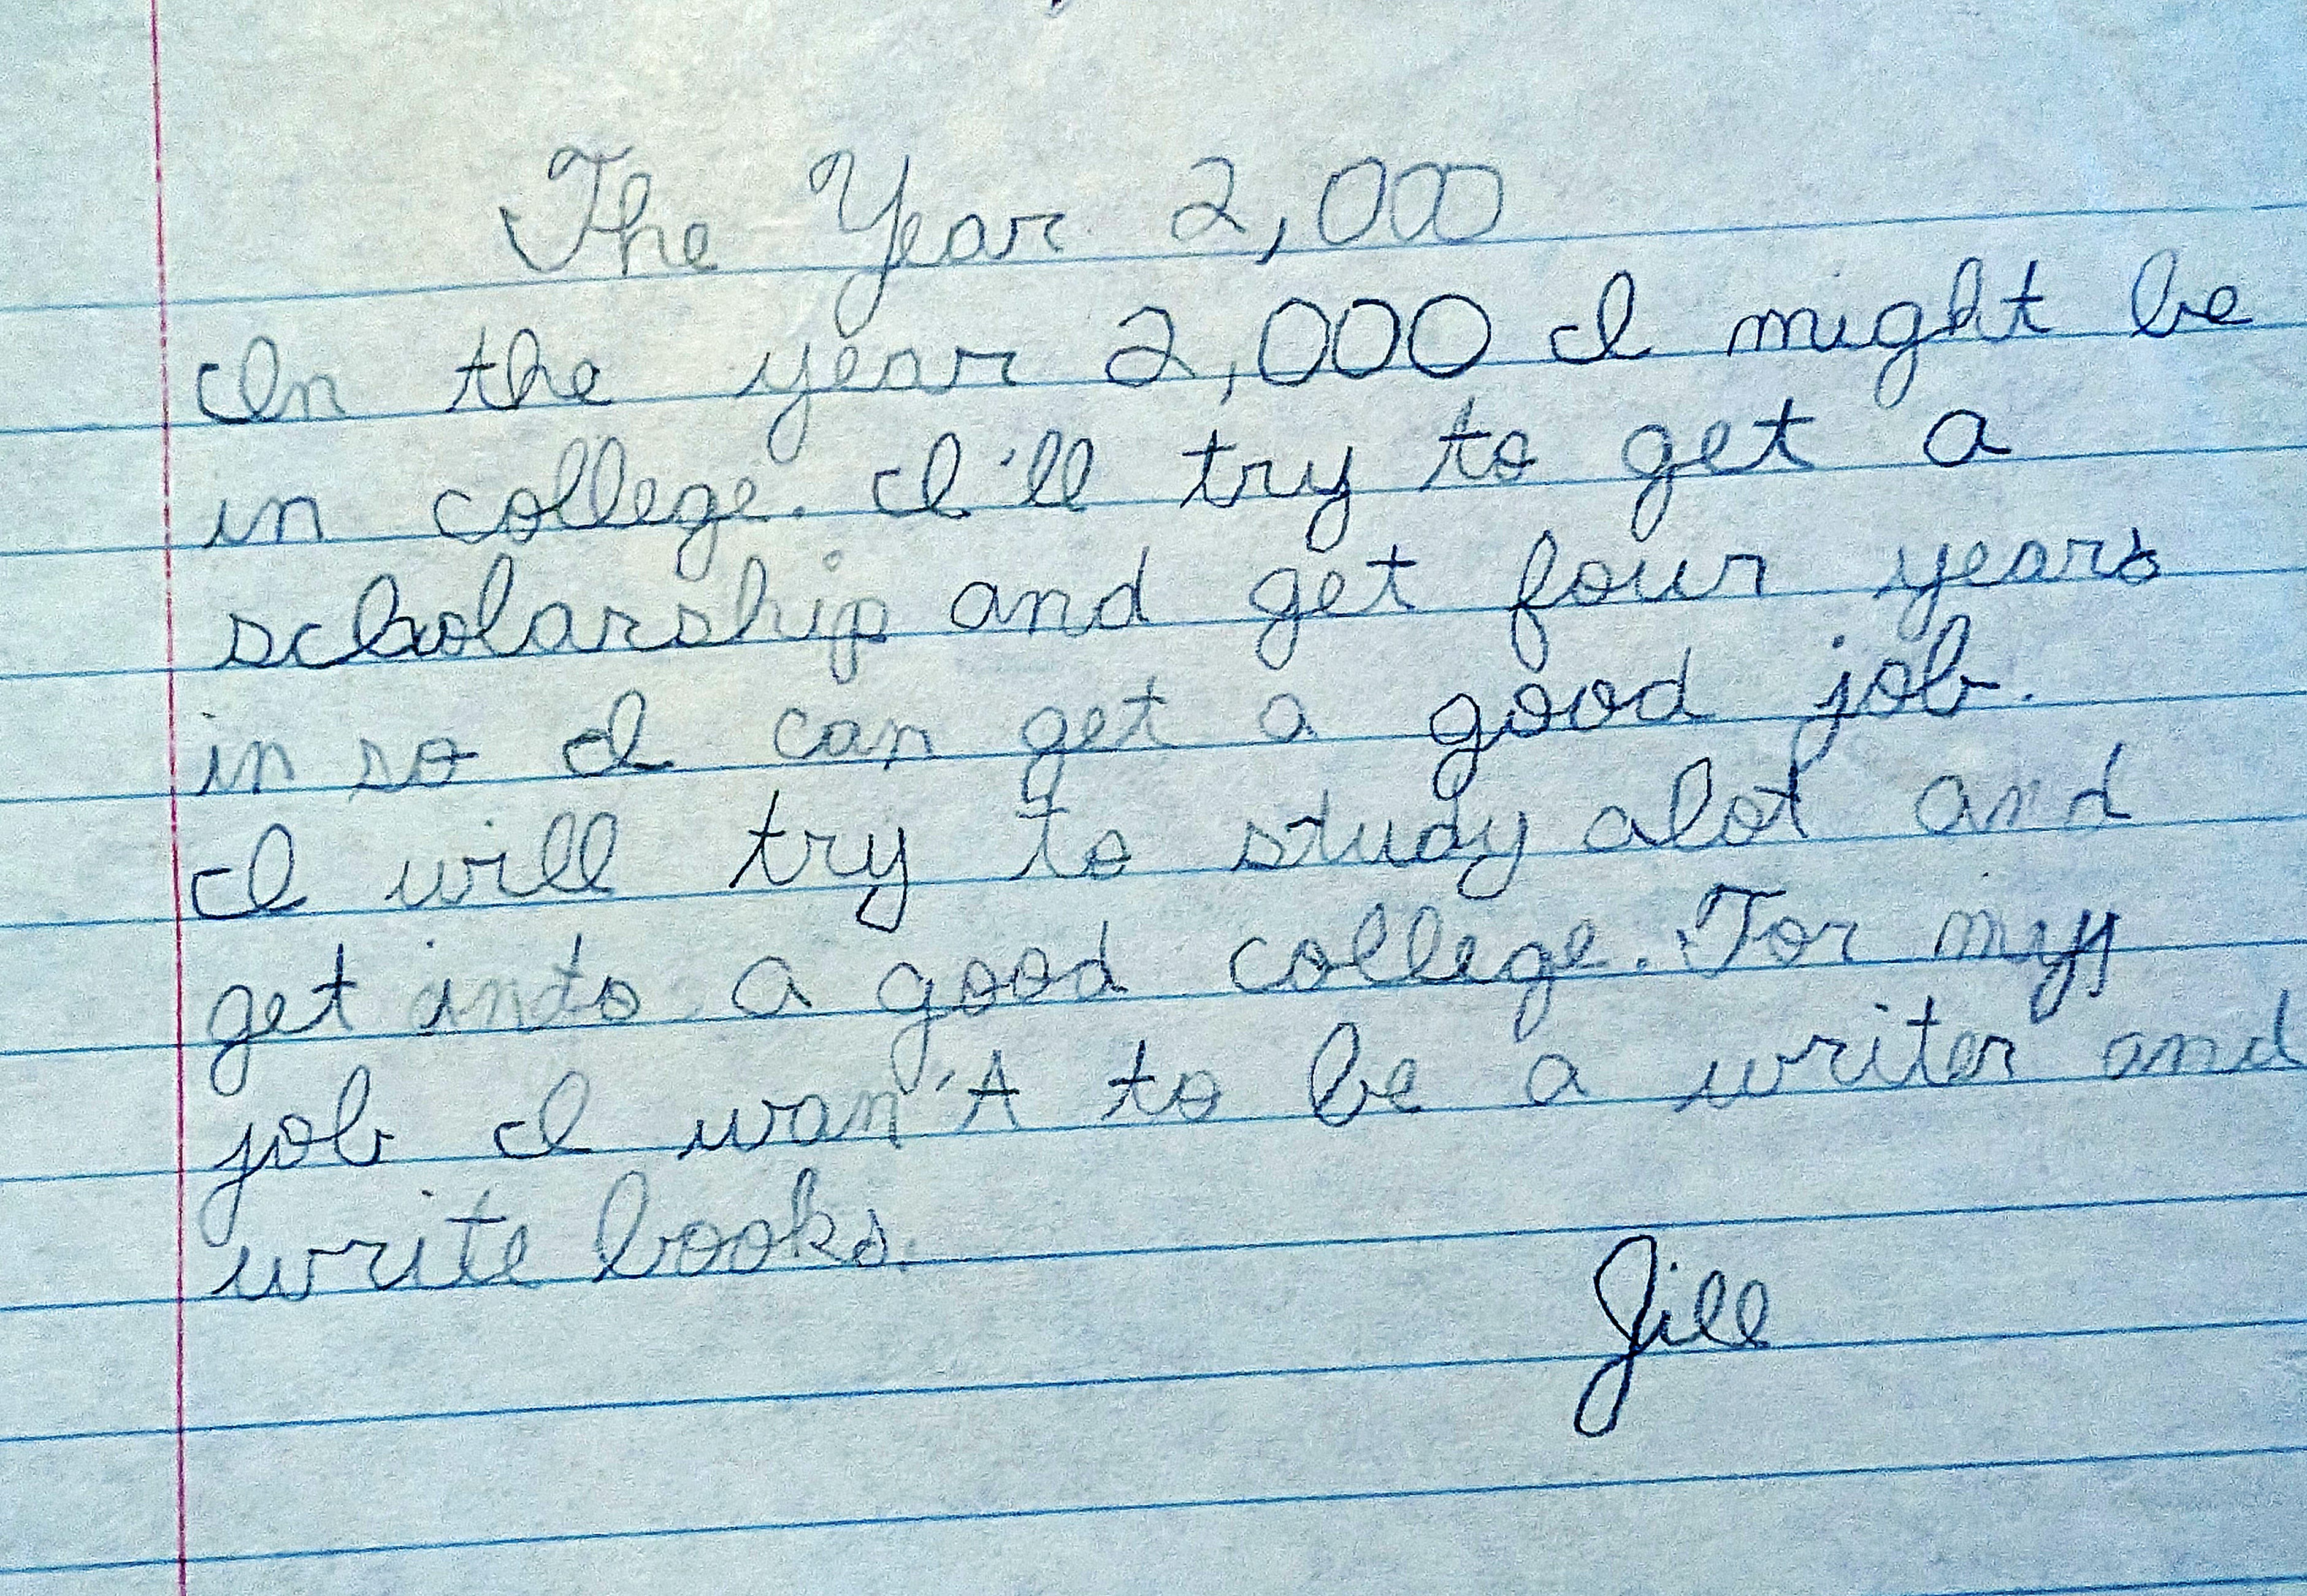 The Year 2,000
In the year 2,000 I might be
in college. I'll try to get a
scholarship and get four years
in so I can get a good job.
I will try to study alot and
get into a good college. For my
job I wan't to be a writer and
write books.
Jill